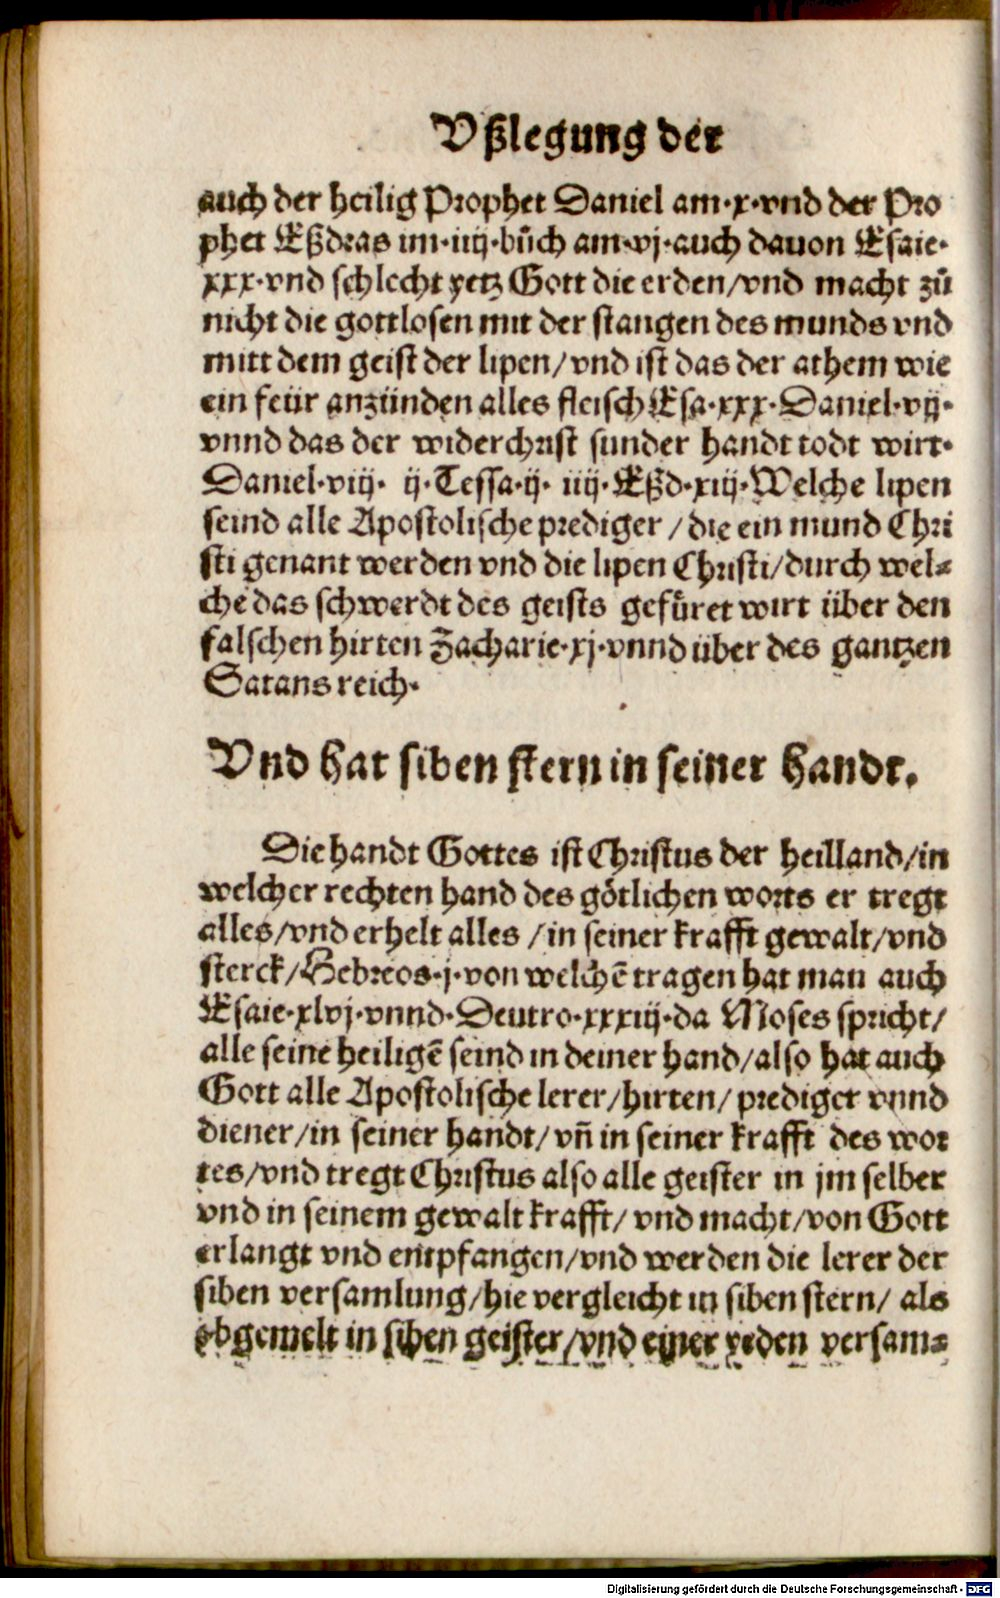 Vßlegung der
auch der heilig Prophet Daniel am·x·vnd der Pro
phet Eßdras im·iiij·bůch am·vj·auch dauon Esaie·
xxx·vnd schlecht yetz Gott die erden/vnd macht zů
nicht die gottlosen mit der stangen des munds vnd
mitt dem geist der lipen/vnd ist das der athem wie
ein feür anzünden alles fleisch Esa·xxx·Daniel·vij·
vnnd das der widerchrist sunder handt todt wirt·
Daniel·viij· ij·Tessa·ij· iiij·Eßd·xiij·Welche lipen
seind alle Apostolische prediger/die ein mund Chri
sti genant werden vnd die lipen Christi/durch wel⸗
che das schwerdt des geists gefüret wirt über den
falschen hirten Zacharie·xj·vnnd über des gantzen
Satans reich·
Vnd hat siben stern in seiner handt.
Die handt Gottes ist Christus der heilland/in
welcher rechten hand des götlichen worts er tregt
alles/vnd erhelt alles/in seiner krafft gewalt/vnd
sterck/Hebreos·j·von welchē tragen hat man auch
Esaie·xlvj·vnnd·Deutro·xxxiij·da Moses spricht/
alle seine heiligē seind in deiner hand/also hat auch
Gott alle Apostolische lerer/hirten/prediger vnnd
diener/in seiner handt/vñ in seiner krafft des wor
tes/vnd tregt Christus also alle geister in jm selber
vnd in seinem gewalt krafft/vnd macht/von Gott
erlangt vnd entpfangen/vnd werden die lerer der
siben versamlung/hie vergleicht in siben stern/als
obgemelt in siben geister/vnd einer yeden versam⸗
Digitalisierung gefördert durch die Deutsche Forschungsgemeinschaft - DFG